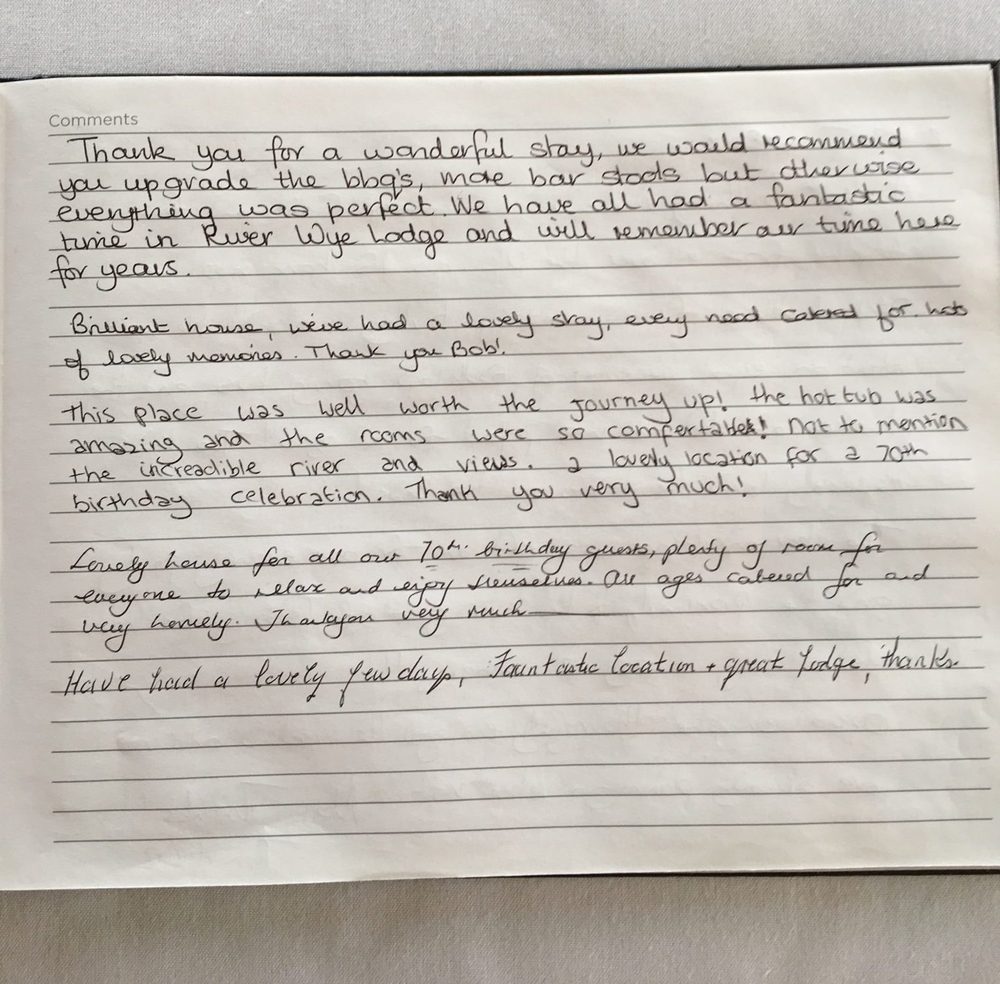 Comments
Thank you for a wonderful stay, we would recommend
you upgrade the bbq's, more bar stools but otherwise
everything was perfect. We have all had a fantastic
time in River Wye Lodge and will remember our time here
for years.
Brilliant house, we've had a lovely stay, every need catered for. Lots
of lovely memories. Thank you Bob!
This place was well worth the journey up! the hot tub was
amazing and the rooms were so comfertable! Not to mention
the increadible river and views. a lovely location for a 70th
birthday celebration. Thank you very much!
Lovely house for all our 70th. birthday guests, plenty of room for
everyone to relax and enjoy themselves. All ages catered for and
very homely. Thankyou very much
Have had a lovely few days, Fauntastic location + great lodge, thanks